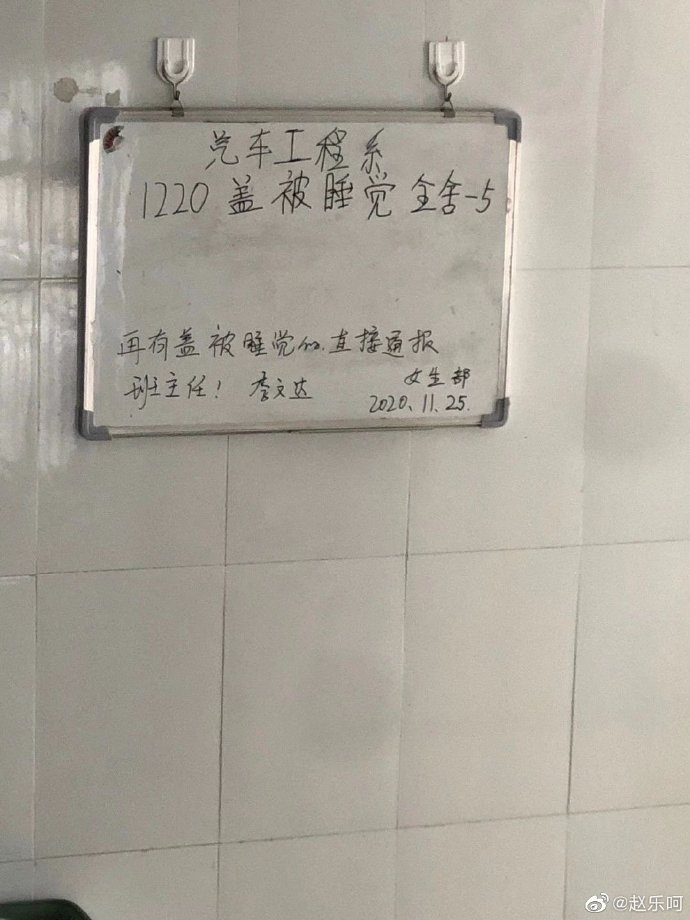 汽车工程系
1220 盖被睡觉 全舍-5
再有盖被睡觉的.直接通报
班主任! 李文达 女生部
2020.11.25.
@赵乐呵